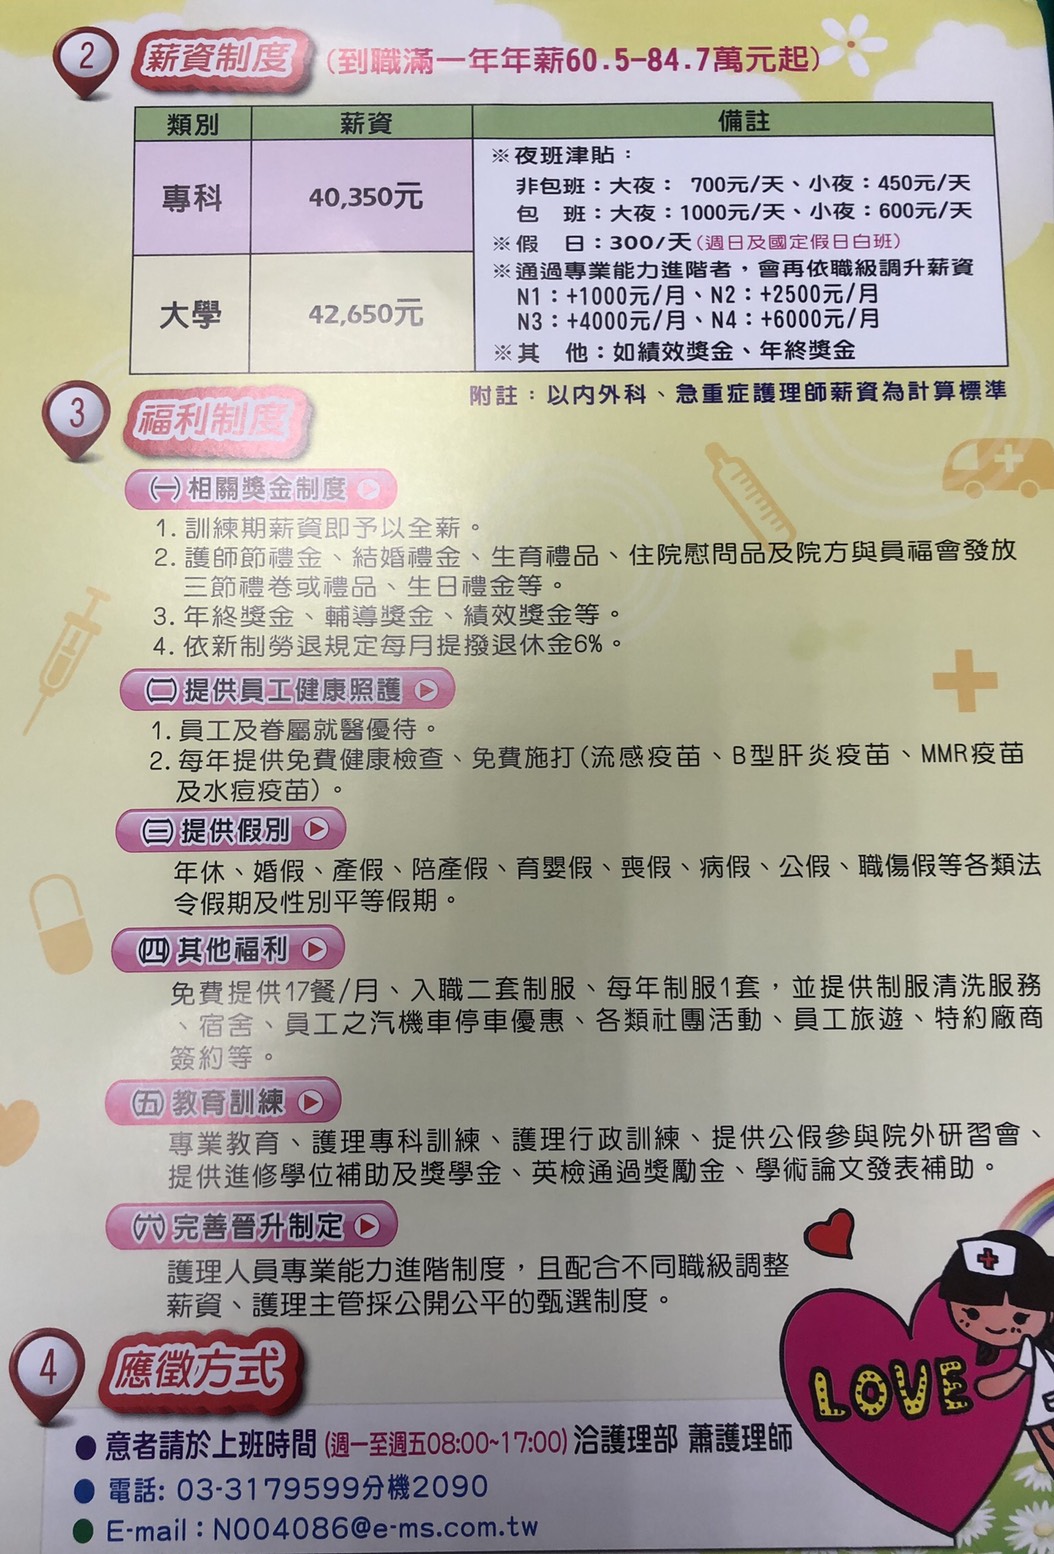 2 薪資制度 (到職滿一年年薪60.5-84.7萬元起)
類別 薪資 備註
專科 40,350元
大學 42,650元
※夜班津貼：
非包班：大夜： 700元/天、小夜：450元/天
包 班：大夜：1000元/天、小夜：600元/天
※假 日：300/天(週日及國定假日白班)
※通過專業能力進階者，會再依職級調升薪資
N1：+1000元/月、N2：+2500元/月
N3：+4000元/月、N4：+6000元/月
※其 他：如績效獎金、年終獎金
附註：以內外科、急重症護理師薪資為計算標準
3 福利制度
(一)相關獎金制度
1. 訓練期薪資即予以全薪。
2. 護師節禮金、結婚禮金、生育禮品、住院慰問品及院方與員福會發放
三節禮卷或禮品、生日禮金等。
3. 年終獎金、輔導獎金、績效獎金等。
4. 依新制勞退規定每月提撥退休金6%。
(二)提供員工健康照護
1. 員工及眷屬就醫優待。
2. 每年提供免費健康檢查、免費施打(流感疫苗、B型肝炎疫苗、MMR疫苗
及水痘疫苗)。
(三)提供假別
年休、婚假、產假、陪產假、育嬰假、喪假、病假、公假、職傷假等各類法
令假期及性別平等假期。
(四)其他福利
免費提供17餐/月、入職二套制服、每年制服1套，並提供制服清洗服務
、宿舍、員工之汽機車停車優惠、各類社團活動、員工旅遊、特約廠商
簽約等。
(五)教育訓練
專業教育、護理專科訓練、護理行政訓練、提供公假參與院外研習會、
提供進修學位補助及獎學金、英檢通過獎勵金、學術論文發表補助。
(六)完善晉升制定
護理人員專業能力進階制度，且配合不同職級調整
薪資、護理主管採公開公平的甄選制度。
LOVE
4 應徵方式
●意者請於上班時間(週一至週五08:00~17:00)洽護理部 蕭護理師
●電話: 03-3179599分機2090
●E-mail：N004086@e-ms.com.tw